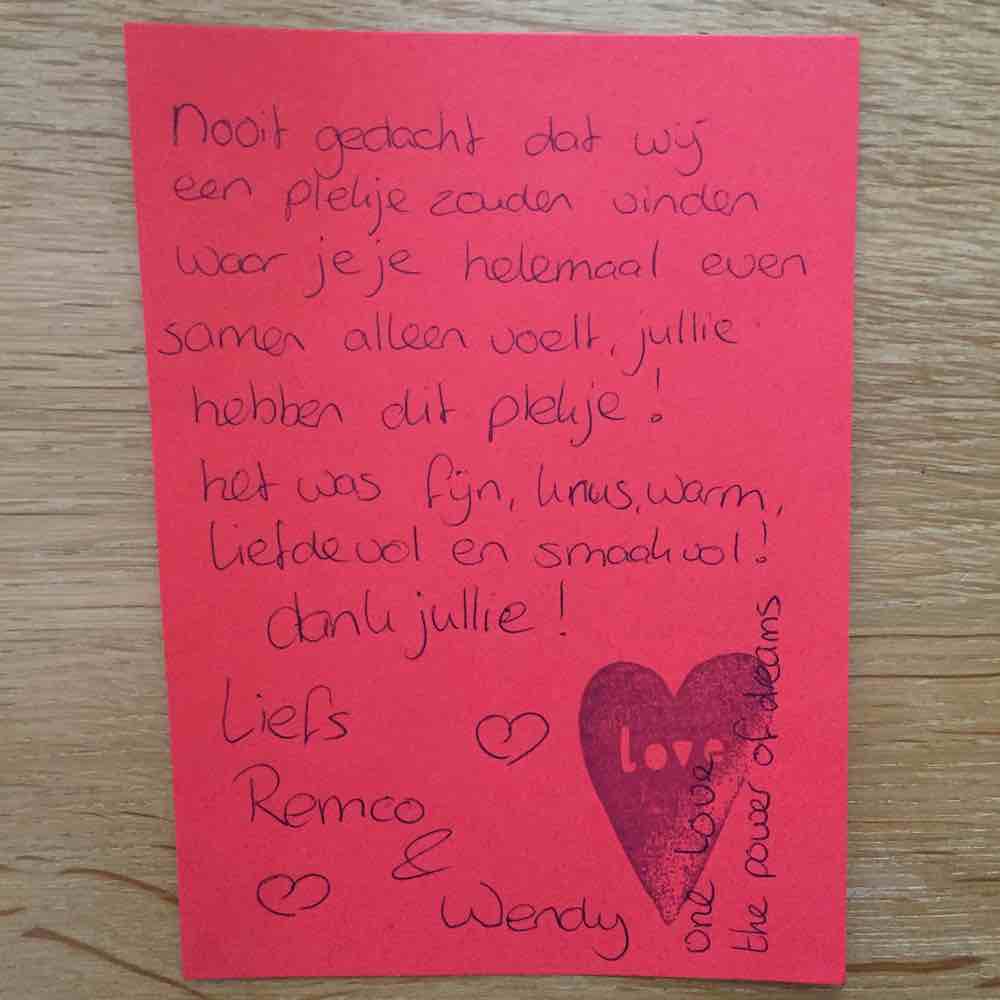 Nooit gedacht dat wij
een plekje zouden vinden
waar je je helemaal even
samen alleen voelt, jullie
hebben dit plekje!
het was fijn, knus, warm,
liefdevol en smaakvol!
dank jullie!
Liefs
Remco
&
Wendy
love
one love,
the power of dreams